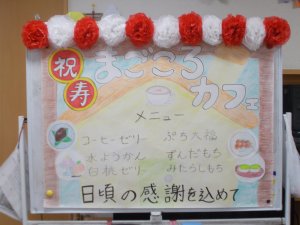 祝
寿
まごころ
カフェ
メニュー
コーヒーゼリー
水ようかん
白桃ゼリー
ぷち大福
ずんだもち
みたらしもち
日頃の感謝を込めて